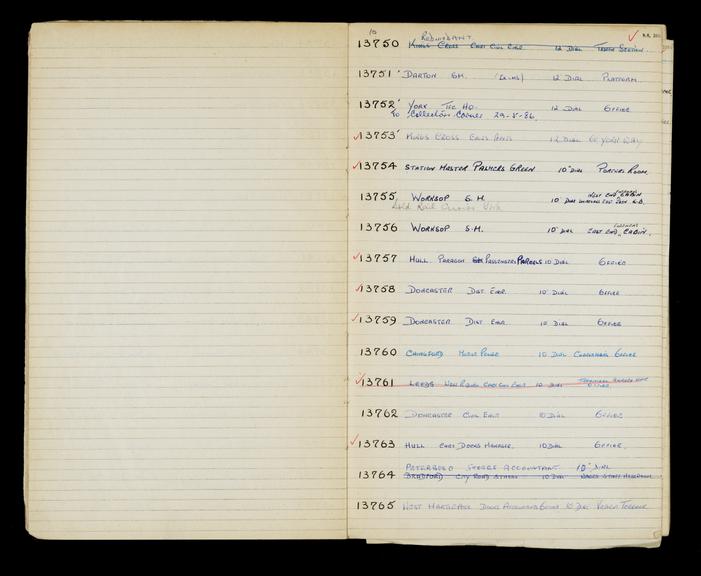 10 Redundant
13750 Kings Cross Civil Engr 12" Dial Section
13751 Darton SM. 12" Dial Platform
13752 York Tel Ho. 12 Dial Office
To Collection Curves 29-5-86.
13753 Kings Cross 12 Dial York Way
13754 Station Master Palmers Green 10" Dial Porters Room
13755 Worksop S.M. 10" Dial West End Cabin
Sold Rail York
13756 Worksop S.M. 10" Dial East End Cabin.
13757 Hull Paragon Passengers Parcels 10 Dial Office
13758 Doncaster Dist Engr. 10" Dial Office
13759 Doncaster Dist Engr. 10" Dial Office
13760 Chingford Motive Power 10 Dial Office
13761 Leeds 10" Dial Office
13762 Doncaster Civil Engr 10 Dial Office
13763 Hull Docks Manager. 10 Dial Office.
Peterboro Stores Accountant 10" Dial
13764 Bradford City Road Station 10 Dial
13765 West Hartlepool Docks 10 Dial Terrace